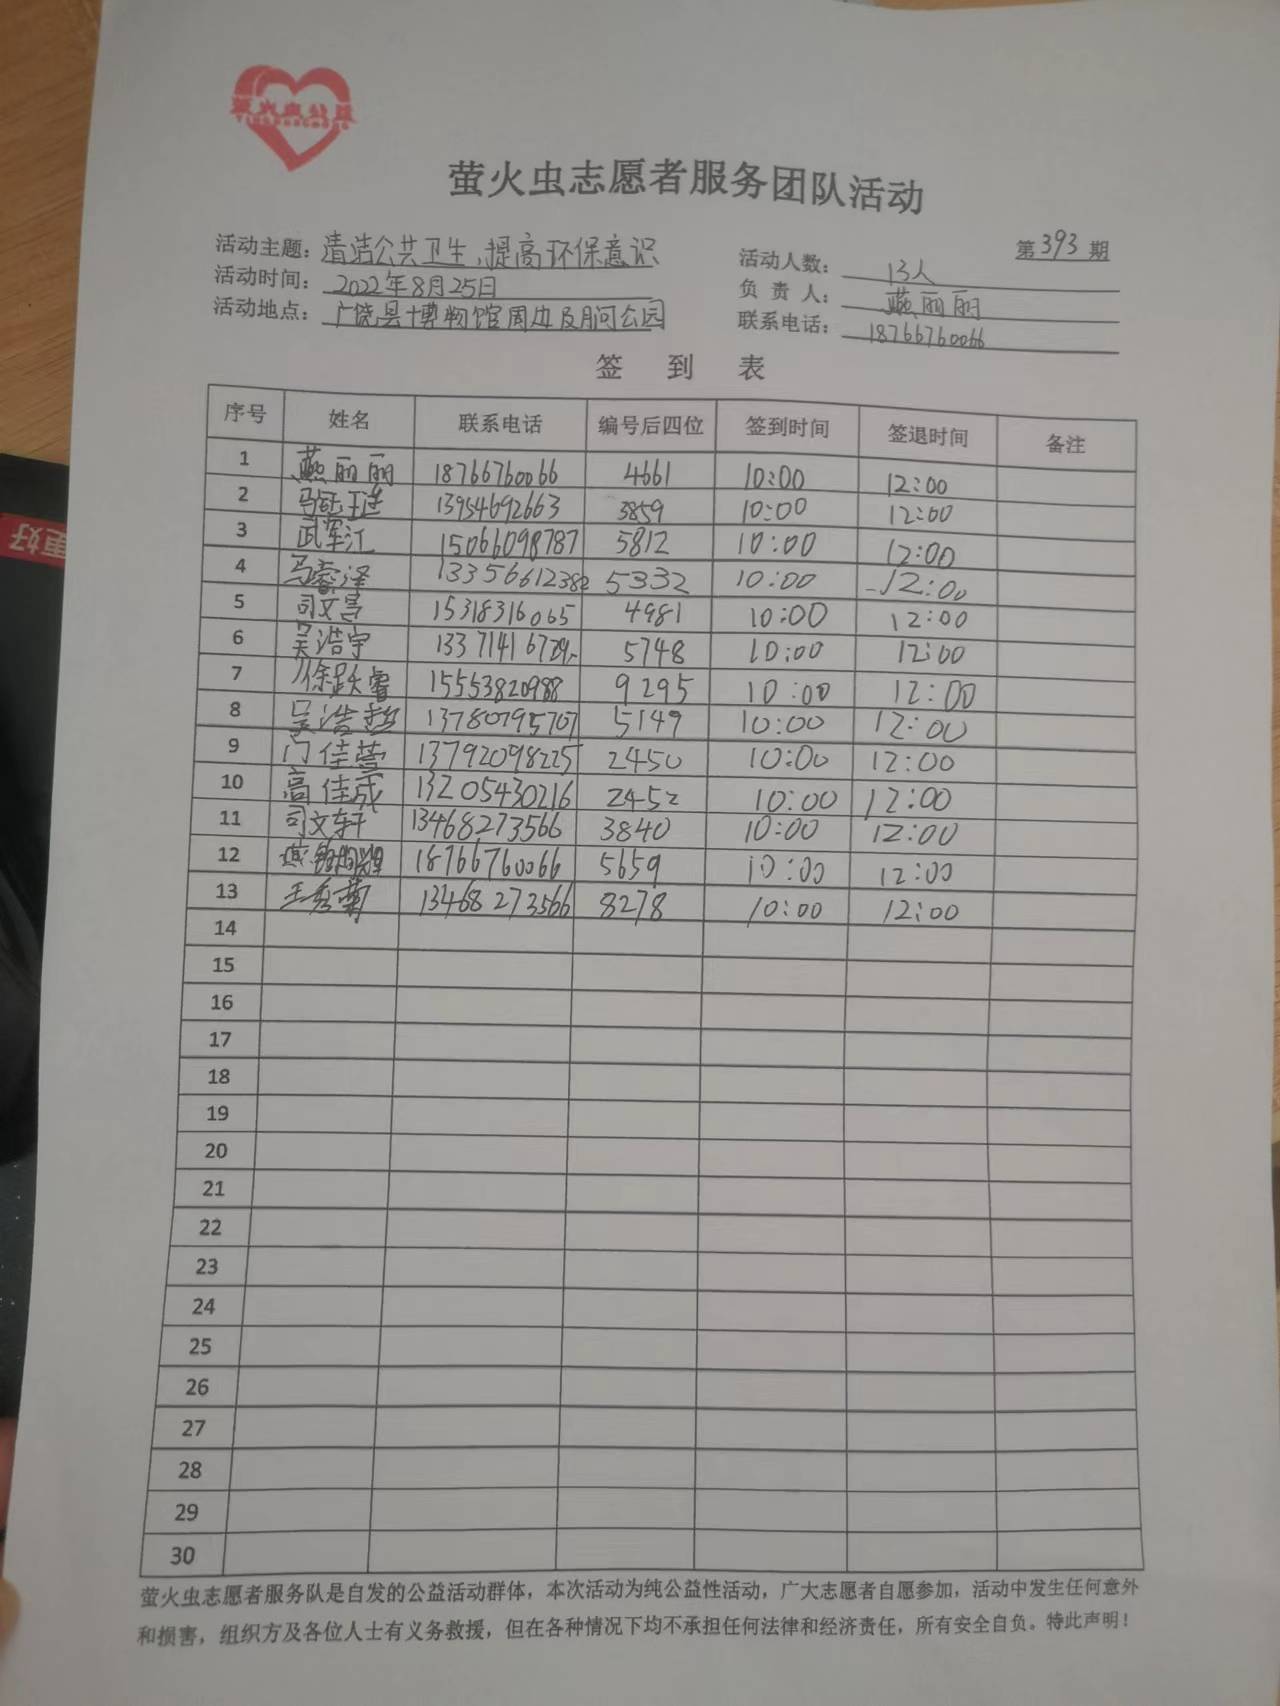 萤火虫公益
萤火虫志愿者服务团队活动
第393期
活动主题：清洁公共卫生，提高环保意识 活动人数：13人
活动时间：2022年8月25日 负责人：燕丽丽
活动地点：广饶县博物馆周边及月河公园 联系电话：18766760066
签到表
序号 姓名 联系电话 编号后四位 签到时间 签退时间 备注
1 燕丽丽 18766760066 4661 10:00 12:00
2 13954692663 3859 10:00 12:00
3 武军江 15066098787 5812 10:00 12:00
4 13356612382 5332 10:00 12:00
5 司文宫 15318316065 4981 10:00 12:00
6 吴浩宇 5748 10:00 12:00
7 徐跃睿 15553820988 9295 10:00 12:00
8 吴浩 13780795707 5149 10:00 12:00
9 门佳莹 13792098225 2450 10:00 12:00
10 高佳成 13205430216 2452 10:00 12:00
11 司文轩 13468273566 3840 10:00 12:00
12 18766760066 5659 10:00 12:00
13 王秀菊 13468273566 8278 10:00 12:00
14
15
16
17
18
19
20
21
22
23
24
25
26
27
28
29
30
萤火虫志愿者服务队是自发的公益活动群体，本次活动为纯公益性活动，广大志愿者自愿参加，活动中发生任何意外
和损害，组织方及各位人士有义务救援，但在各种情况下均不承担任何法律和经济责任，所有安全自负。特此声明！
更好